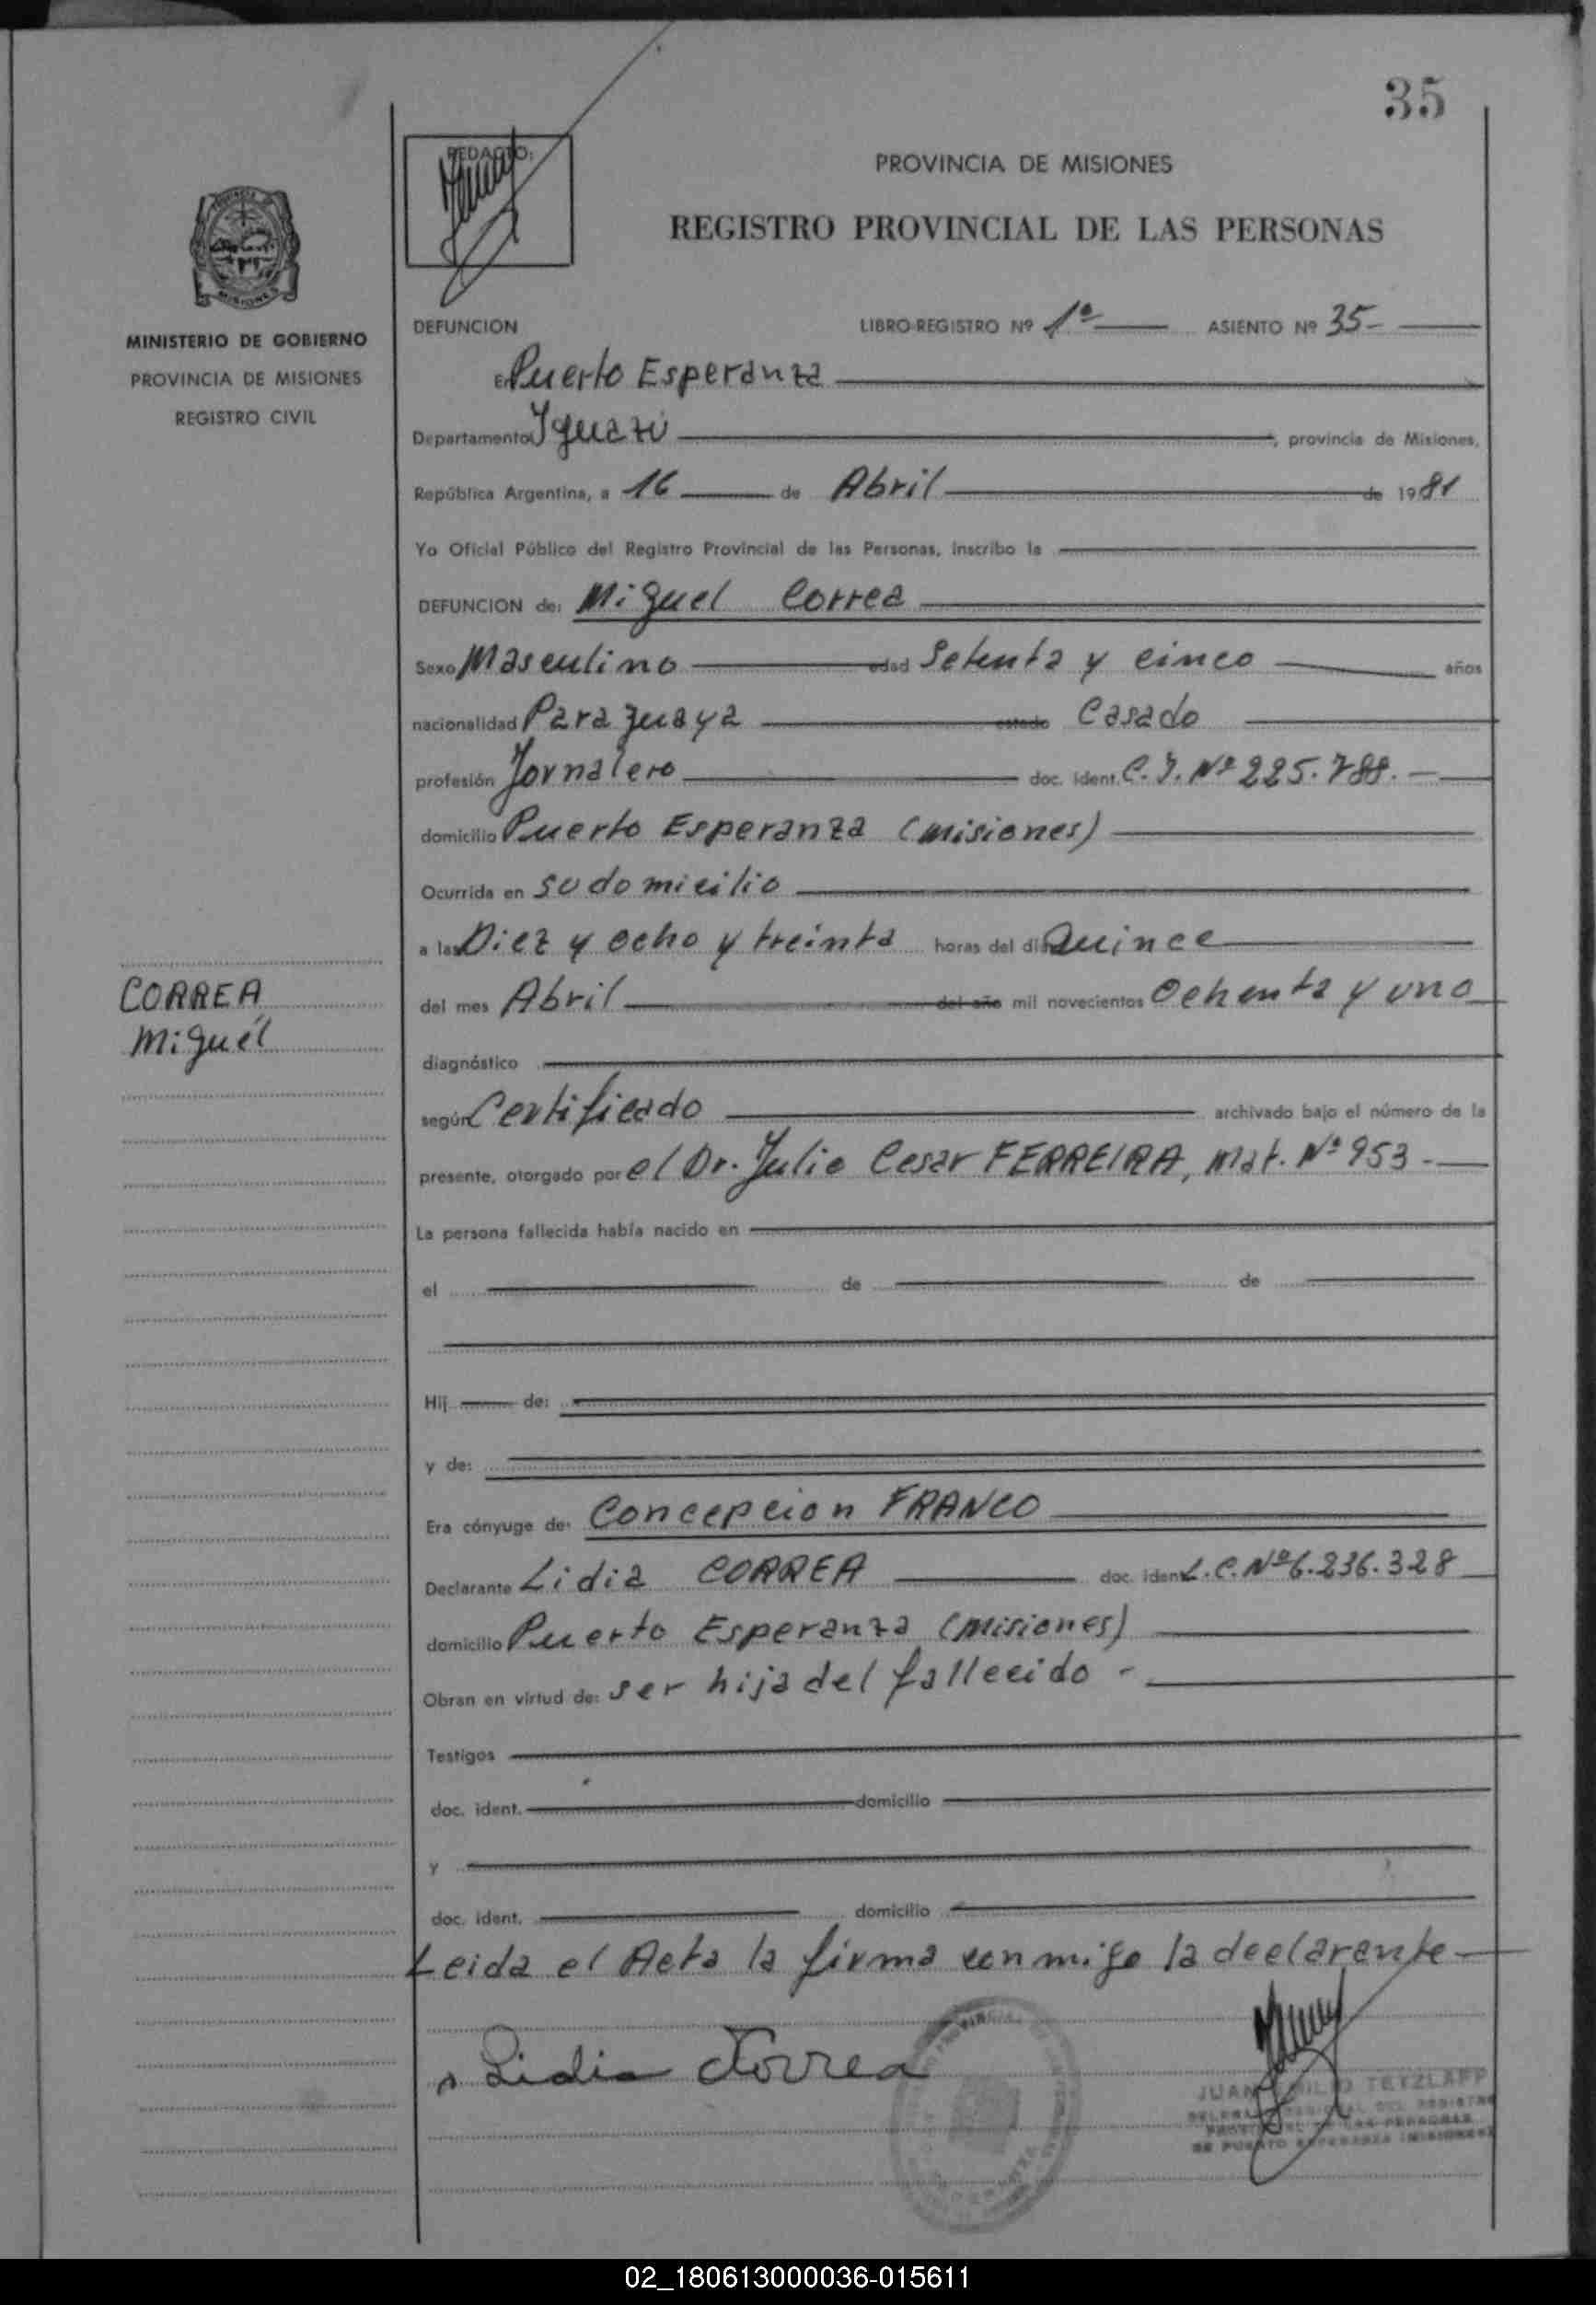 35
PROVINCIA DE MISIONES
REGISTRO PROVINCIAL DE LAS PERSONAS
REDACTO:
MISIONES
MINISTERIO DE GOBIERNO
PROVINCIA DE MISIONES
REGISTRO CIVIL
DEFUNCION LIBRO-REGISTRO Nº 1º ASIENTO Nº 35-
En Puerto Esperanza
Departamento Iguazú, provincia de Misiones,
República Argentina, a 16 de Abril de 1981
Yo Oficial Público del Registro Provincial de las Personas, inscribo la
DEFUNCION de: Miguel Correa
Sexo Masculino edad Setenta y cinco años
nacionalidad Paraguaya estado Casado
profesión Jornalero doc. ident. C.I. Nº 225.788.-
domicilio Puerto Esperanza (Misiones)
Ocurrida en su domicilio
a las Diez y ocho y treinta horas del día Quince
del mes Abril del año mil novecientos Ochenta y uno
CORREA
Miguel
diagnóstico
según Certificado archivado bajo el número de la
presente, otorgado por el Dr. Julio Cesar FERREIRA, Mat. Nº 953.-
La persona fallecida había nacido en
el de de
Hij de:
y de:
Era cónyuge de: Concepcion FRANCO
Declarante Lidia CORREA doc. ident. L.C. Nº 6.236.328
domicilio Puerto Esperanza (Misiones)
Obran en virtud de: ser hija del fallecido -
Testigos
doc. ident. domicilio
y
doc. ident. domicilio
Leida el Acta la firma conmigo la declarante
Lidia Correa
JUAN EMILIO TETZLAFF
02_180613000036-015611